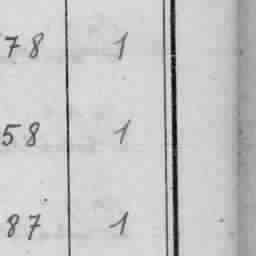 78 1
58 1
87 1